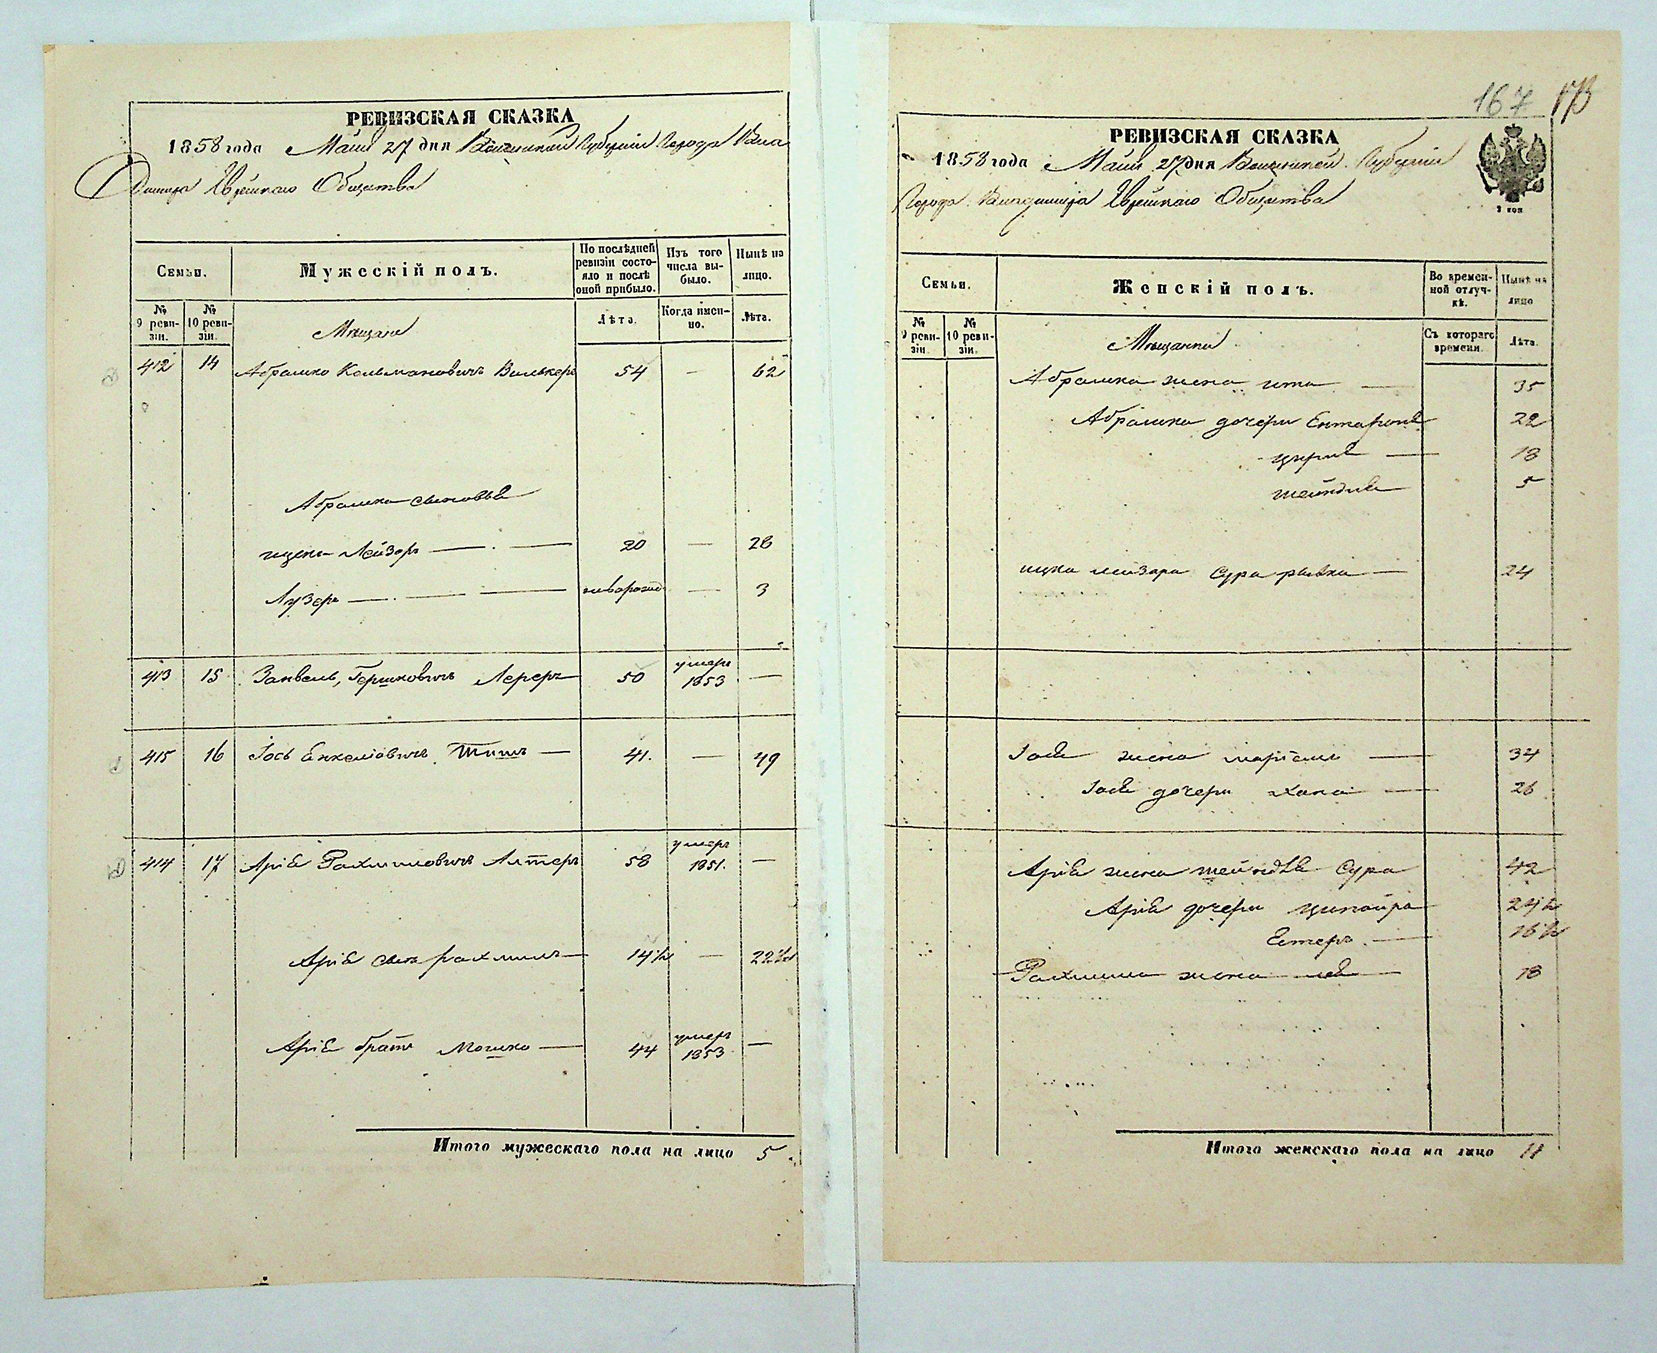 РЕВИЗСКАЯ СКАЗКА
1858 года Маія 27 дня Губерніи Города
Еврейскаго Общества
Семьи.
Мужескій полъ.
По послѣдней ревизіи состояло и послѣ оной прибыло.
Изъ того числа выбыло.
Нынѣ на лицо.
№ 9 ревизіи.
№ 10 ревизіи.
Мещане
Лѣта.
Когда именно.
Лѣта.
412 14 Абрамко Кельмановичъ 54 — 62
Абрамка сыновья
Лейзоръ — 20 — 28
Лузеръ — новорожд — 3
413 15 Занвель Гершковичъ Лереръ 50 умеръ 1853 —
415 16 Іось Енкеліовичъ — 41. — 49
414 17 Аріѣ Рахмиловичъ Алтеръ 58 умеръ 1851. —
Аріѣ сынъ рахмиль — 14½ — 22½
Аріѣ братъ Мошко — 44 умеръ 1853 —
Итого мужескаго пола на лицо 5
167
173
РЕВИЗСКАЯ СКАЗКА
1858 года Маія 27 дня Губерніи
Города Еврейскаго Общества
Семьи.
Женскій полъ.
Во временной отлучкѣ.
Нынѣ на лицо
№ 9 ревизіи.
№ 10 ревизіи.
Мещанки
Съ котораго времени.
Лѣта.
Абрамка жена ита — 35
Абрамка дочери 22
— 18
шейндля 5
ицка лейзора сура ривка — 24
жена маріемъ — 34
дочери хана — 26
Аріѣ жена сура 42
Аріѣ дочери 24½
Естеръ — 16½
Рахмиля жена — 18
Итого женскаго пола на лицо 11